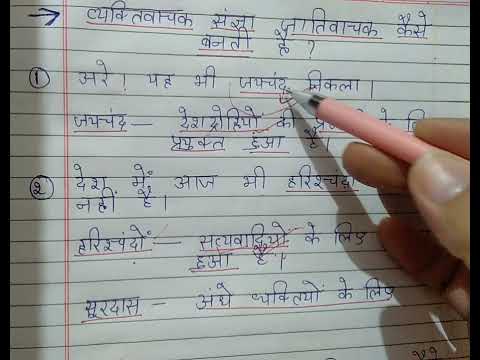 → व्यक्तिवाचक संज्ञा जातिवाचक कैसे
बनती है ?
① अरे ! यह भी जयचंद निकला ।
जयचंद — देश द्रोहियों की के
प्रयुक्त हुआ है ।
② देश में आज भी हरिश्चंद्रों
नहीं है ।
हरिश्चंदों — सत्यवादियों के लिए
हुआ है ।
सूरदास — अंधे व्यक्तियों के लिए